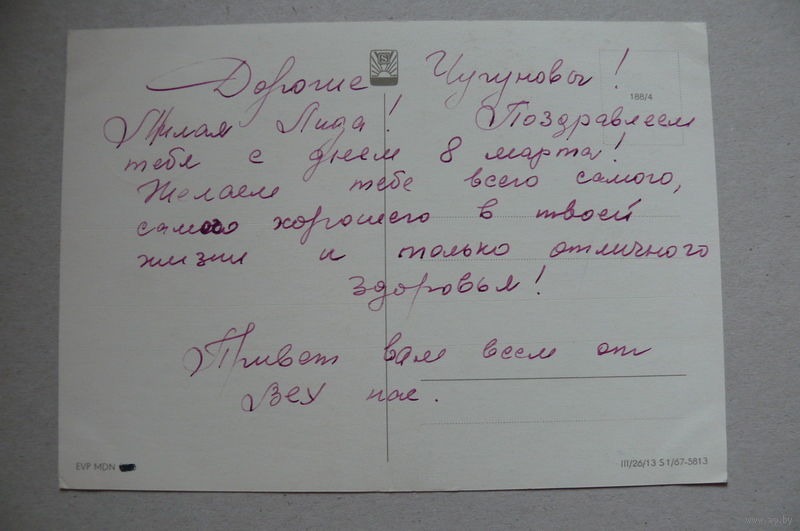 Дорогие Чугуновы!
188/4
Милая Лида! Поздравляем
тебя с днем 8 марта!
Желаем тебе всего самого,
самого хорошего в твоей
жизни и только отличного
здоровья!
Привет вам всем от
нас.
EVP MDN
III/26/13 S 1/67-5813
www.ay.by